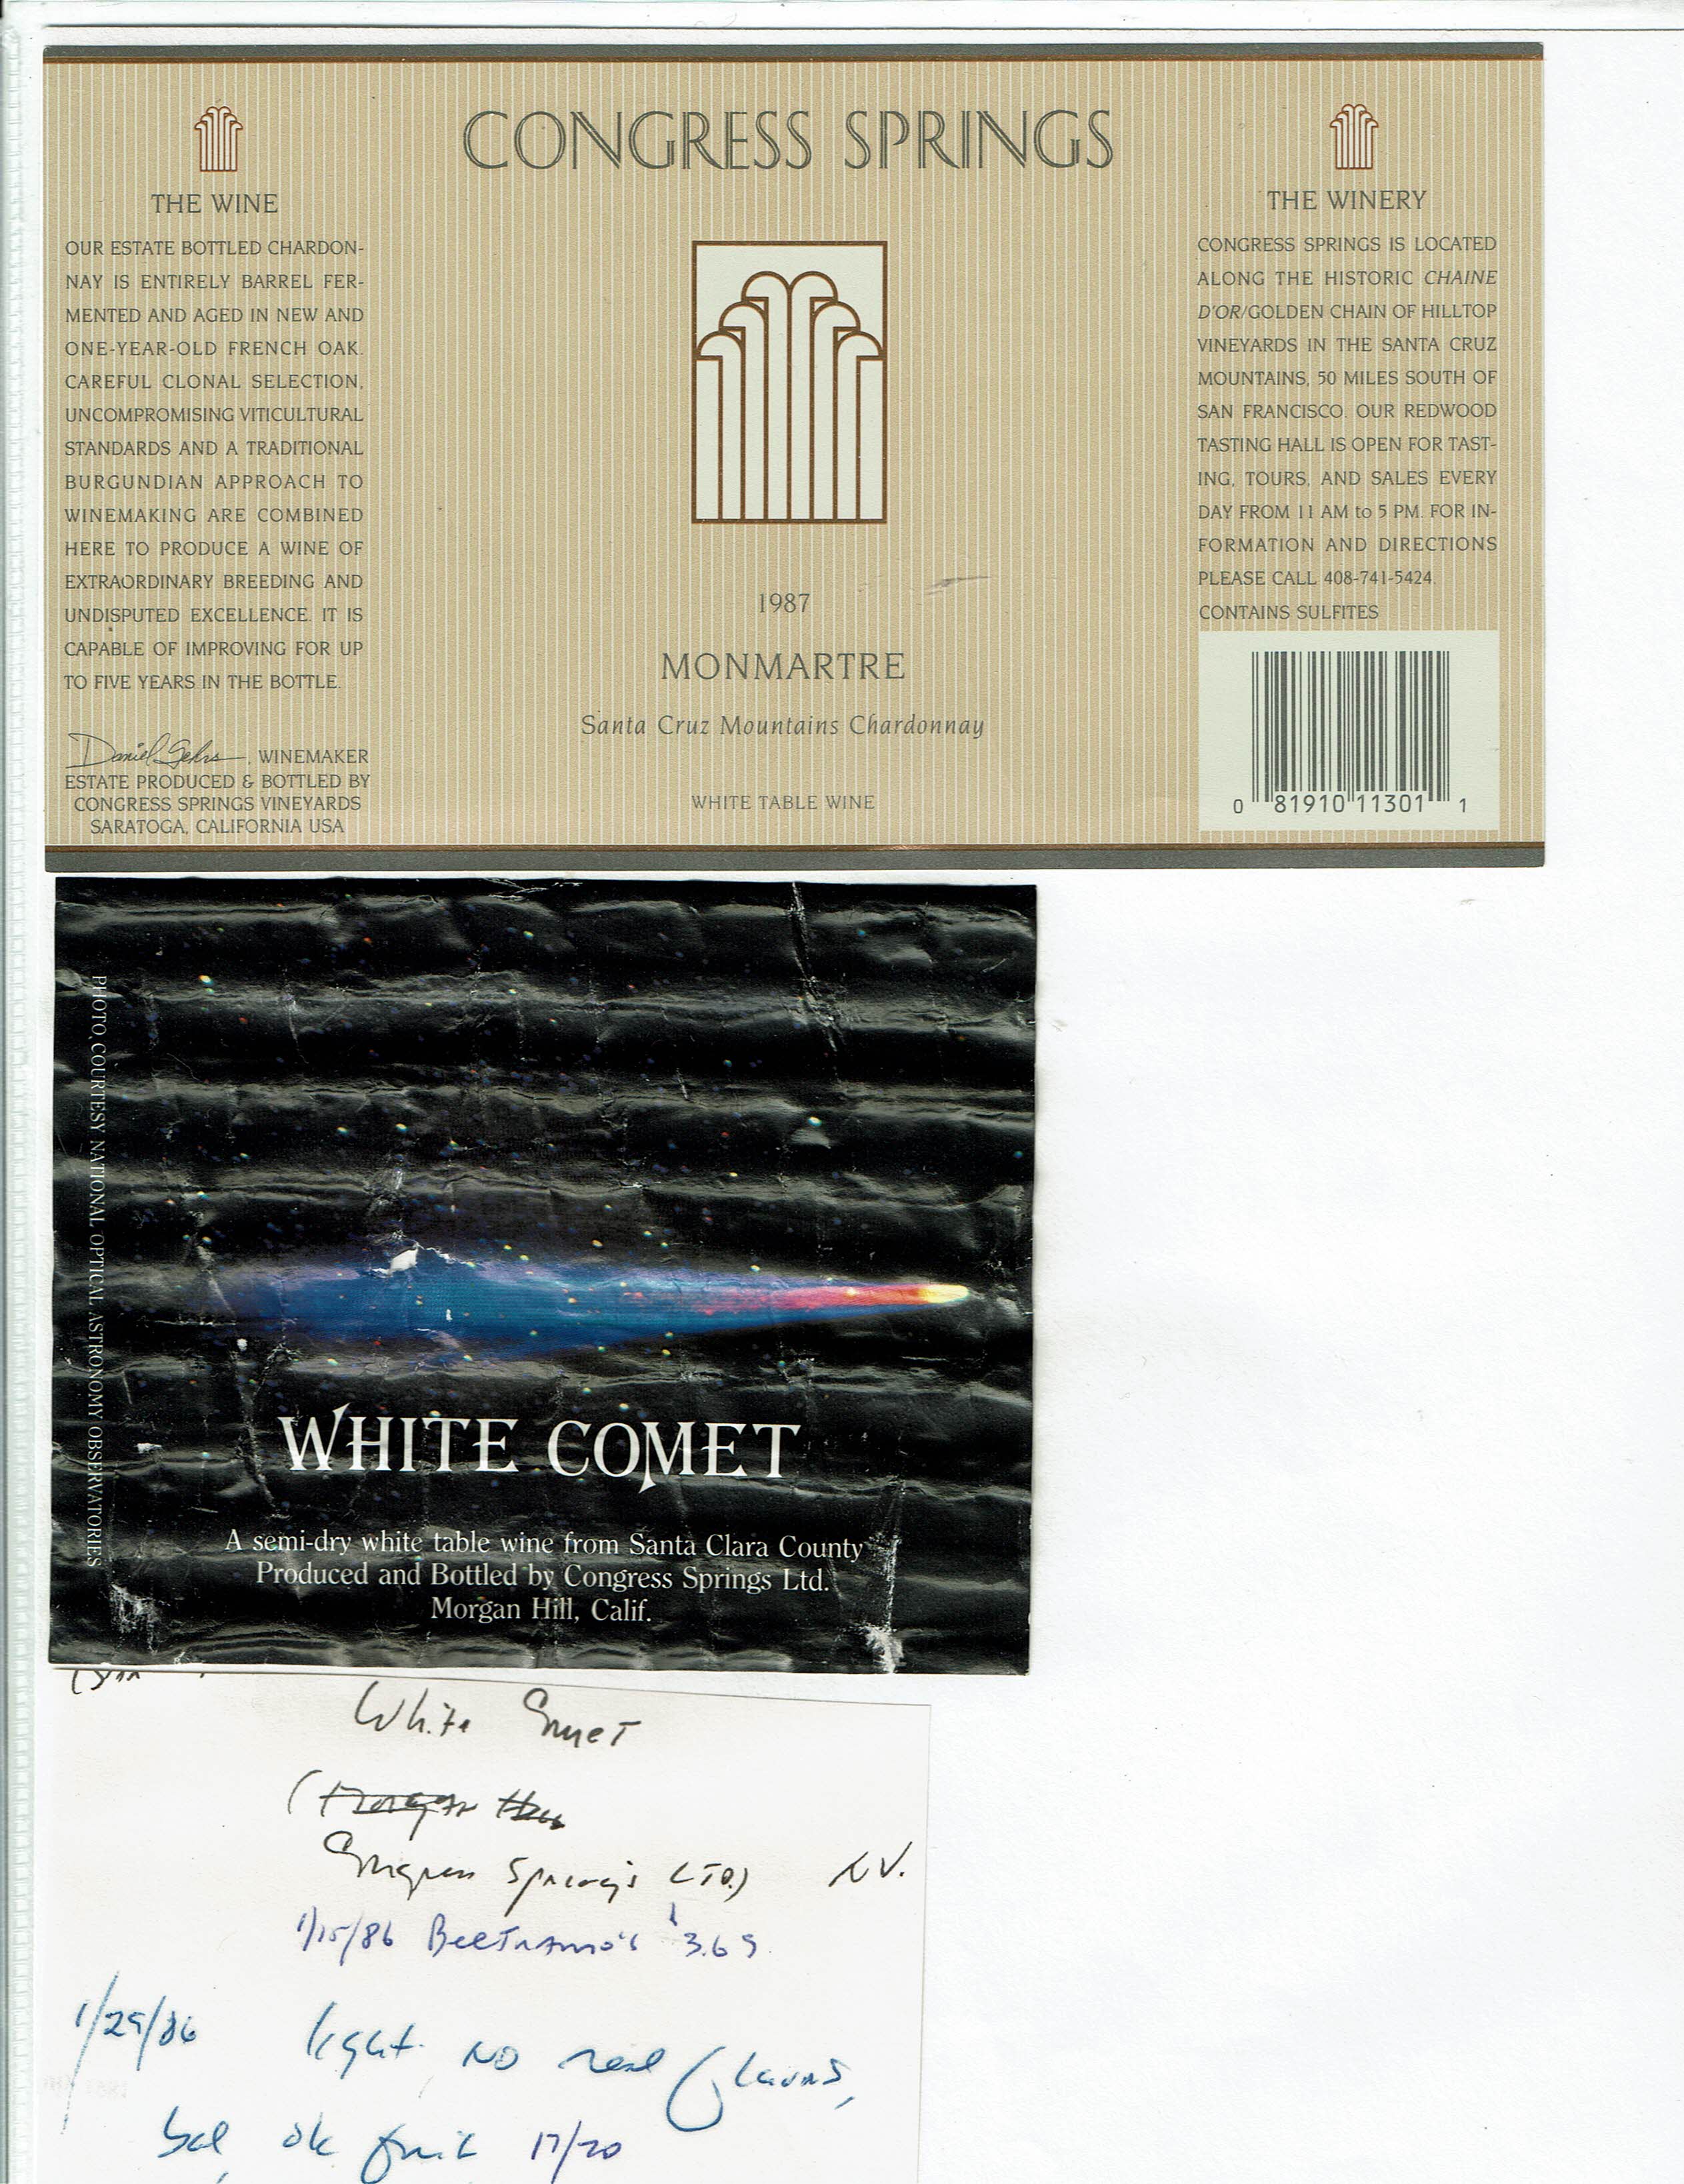 CONGRESS SPRINGS
THE WINE
OUR ESTATE BOTTLED CHARDON-
NAY IS ENTIRELY BARREL FER-
MENTED AND AGED IN NEW AND
ONE-YEAR-OLD FRENCH OAK.
CAREFUL CLONAL SELECTION,
UNCOMPROMISING VITICULTURAL
STANDARDS AND A TRADITIONAL
BURGUNDIAN APPROACH TO
WINEMAKING ARE COMBINED
HERE TO PRODUCE A WINE OF
EXTRAORDINARY BREEDING AND
UNDISPUTED EXCELLENCE. IT IS
CAPABLE OF IMPROVING FOR UP
TO FIVE YEARS IN THE BOTTLE.
Daniel Gehrs, WINEMAKER
ESTATE PRODUCED & BOTTLED BY
CONGRESS SPRINGS VINEYARDS
SARATOGA, CALIFORNIA USA
1987
MONMARTRE
Santa Cruz Mountains Chardonnay
WHITE TABLE WINE
THE WINERY
CONGRESS SPRINGS IS LOCATED
ALONG THE HISTORIC CHAINE
D'OR/GOLDEN CHAIN OF HILLTOP
VINEYARDS IN THE SANTA CRUZ
MOUNTAINS, 50 MILES SOUTH OF
SAN FRANCISCO. OUR REDWOOD
TASTING HALL IS OPEN FOR TAST-
ING, TOURS, AND SALES EVERY
DAY FROM 11 AM to 5 PM. FOR IN-
FORMATION AND DIRECTIONS
PLEASE CALL 408-741-5424.
CONTAINS SULFITES
0 81910 11301 1
PHOTO, COURTESY NATIONAL OPTICAL ASTRONOMY OBSERVATORIES
WHITE COMET
A semi-dry white table wine from Santa Clara County
Produced and Bottled by Congress Springs Ltd.
Morgan Hill, Calif.
White Comet
(Morgan Hill
Congress Springs LTD.) NV.
1/15/86 Beltramo's $3.69
1/29/86 light. no real flavors,
bal, ok fruit 17/20